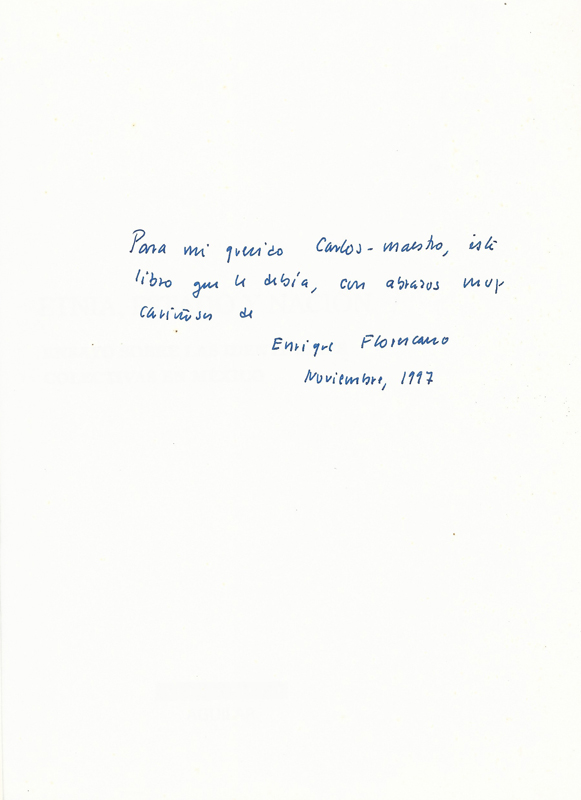 Para mi querido Carlos-maestro, este
libro que le debía, con abrazos muy
cariñosos de
Enrique Florescano
Noviembre, 1997